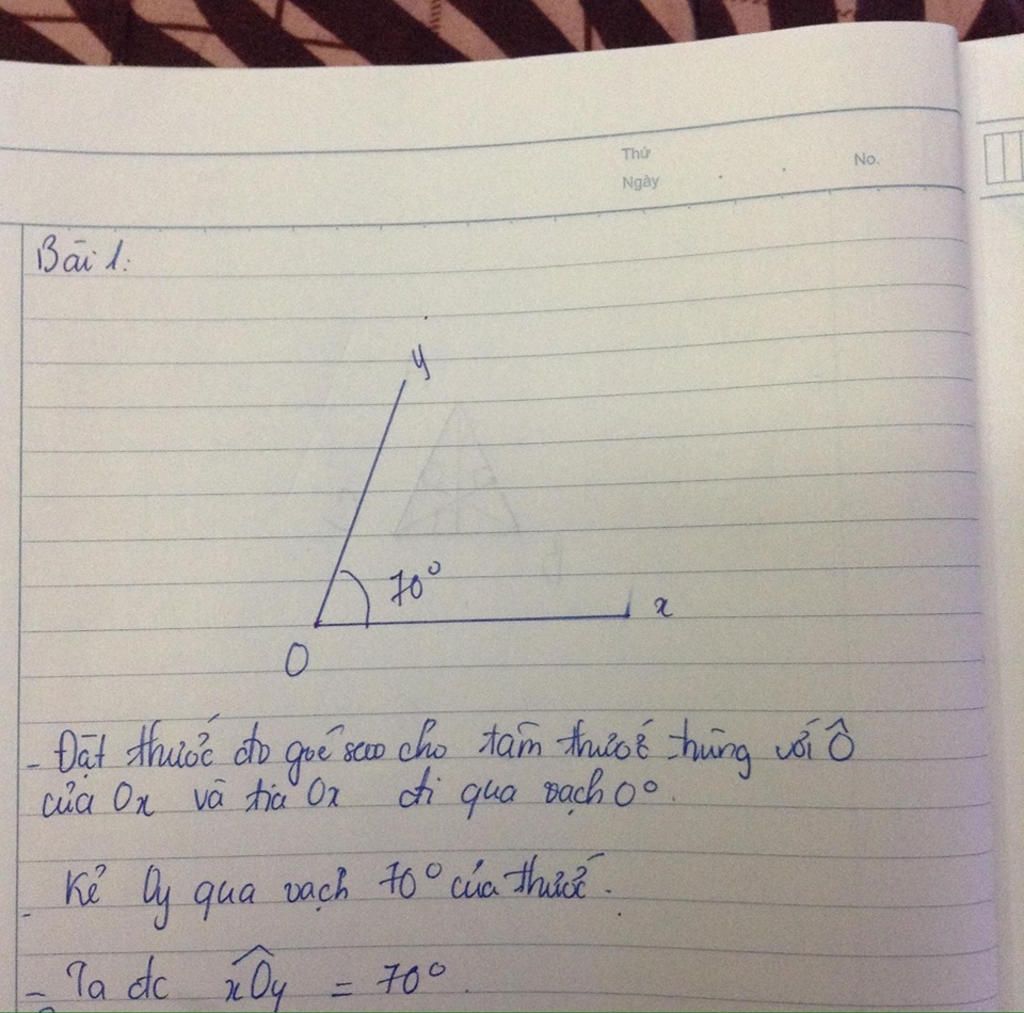 Thứ
Ngày
No.
Bài 1:
y
70°
x
O
- Đặt thước đo góc sao cho tâm thước trùng với Ô
của Ox và tia Ox đi qua vạch 0°.
- Kẻ Oy qua vạch 70° của thước.
- Ta đc xÔy = 70°.